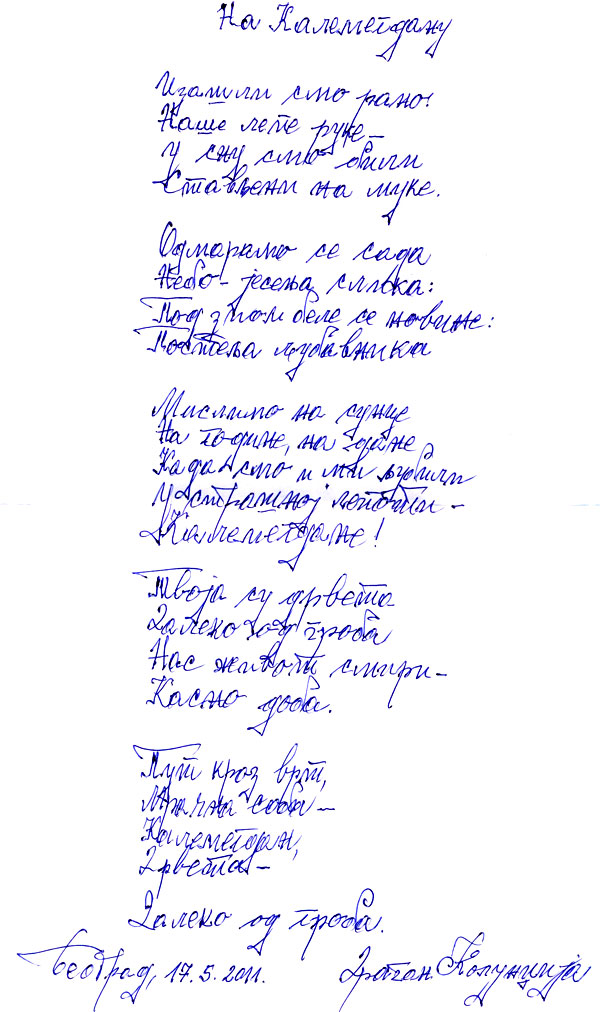 На Калемегдану
Изашли смо рано!
Наше лепе руке –
У сну смо били
Стављени на муке.
Одмарамо се сада
Небо – јесења слика:
Под злом беле се новине:
Постеља љубавника
Мислимо на сунце
На године, на дане
Када смо и ми љубили
У страшној лепоти –
Калемегдане!
Твоја су дрвета
Далеко од гроба
Нас живот смири –
Касно доба.
Пут кроз врт,
Мрачна соба –
Калемегдан,
Дрвета –
Далеко од гроба.
Београд, 17. 5. 2011. Драган Колунџија